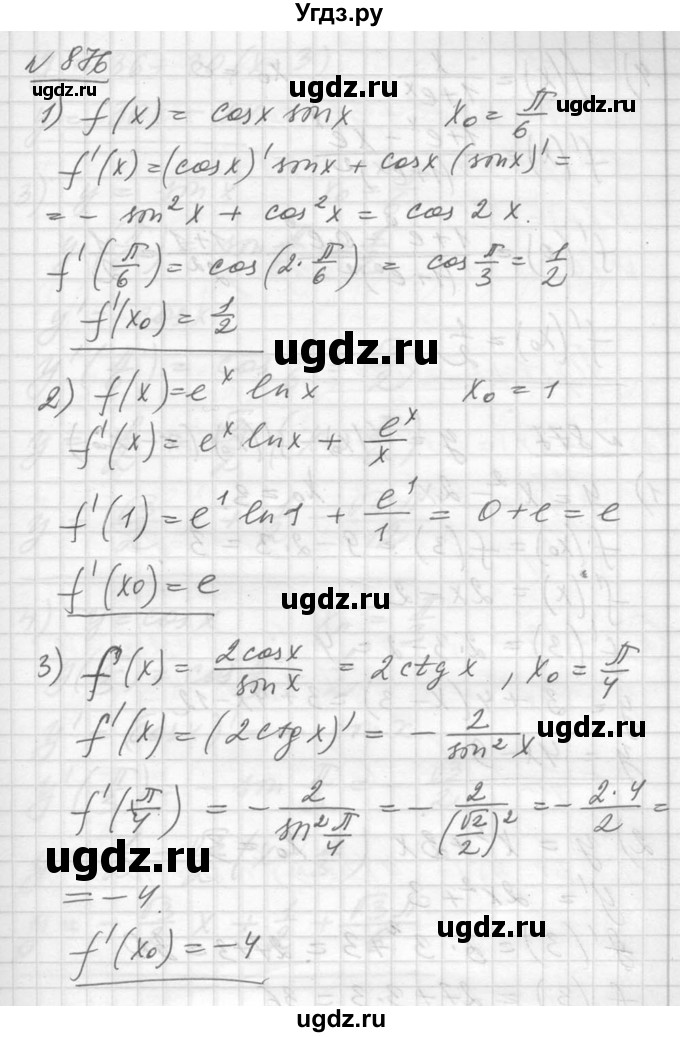 Угдз.ру
№ 876
ugdz.ru
ugdz.ru
1) f(x) = cosx sinx    x₀ = π/6
f'(x) = (cosx)' sinx + cosx (sinx)' =
= - sin²x + cos²x = cos 2x.
f'(π/6) = cos(2·π/6) = cos π/3 = 1/2
f'(x₀) = 1/2
ugdz.ru
2) f(x) = eˣ ln x    x₀ = 1
f'(x) = eˣ lnx + eˣ/x
f'(1) = e¹ ln1 + e¹/1 = 0 + e = e
f'(x₀) = e
ugdz.ru
3) f(x) = 2cosx/sinx = 2ctg x , x₀ = π/4
f'(x) = (2ctgx)' = - 2/sin²x
ugdz.ru
f'(π/4) = - 2/sin² π/4 = - 2/(√2/2)² = - 2·4/2 =
ugdz.ru
= -4.
ugdz.ru
f'(x₀) = -4
ugdz.ru
ugdz.ru